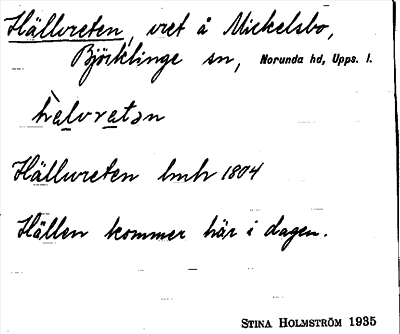 Hällvreten, vret å Mickelsbo,
Björklinge sn, Norunda hd, Upps. l.
hèlvretən
Hällvreten lmh 1804
Hällen kommer här i dagen.
STINA HOLMSTRÖM 1935